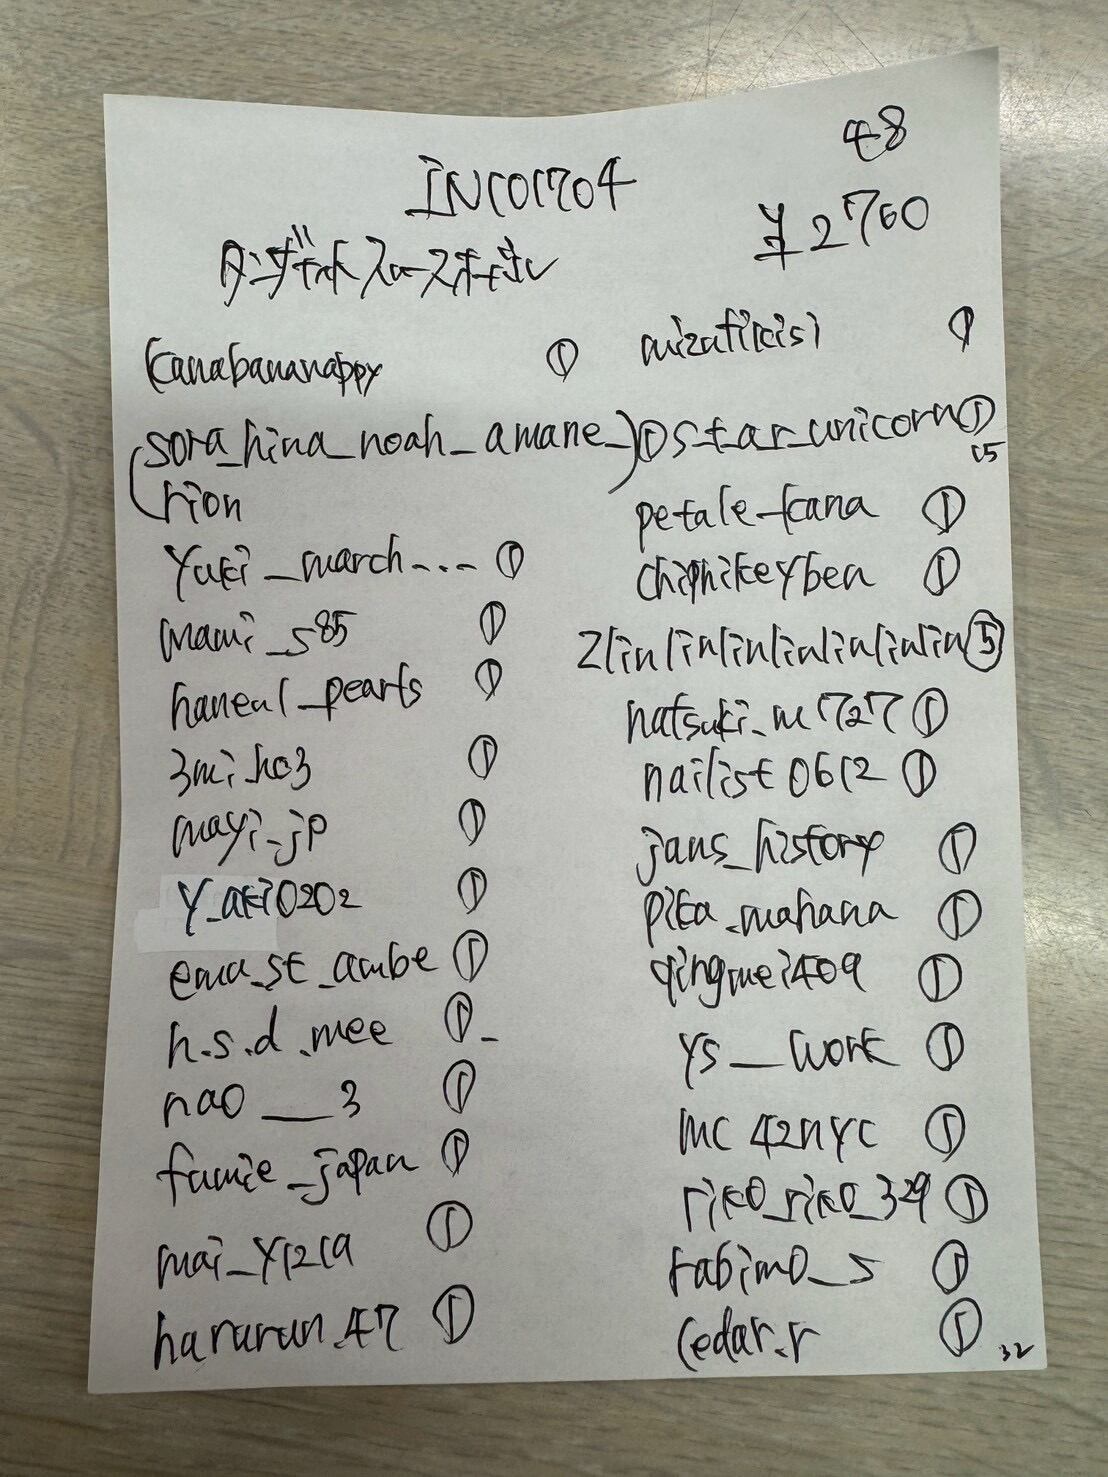 48
INC01704
¥2760
kanabananappy ①
sora_hina_noah_amane_rion ①
yuki_march---- ①
mami_s85 ①
haneul_pearls ①
3mi_ho3 ①
mayi_jp ①
y_aki0202 ①
ema_st_ambe ①
h.s.d.mee ①
nao___3 ①
fumie_japan ①
mai_y1219 ①
hanarun.47 ①
①
star_unicorn ①
15
petale_kana ①
①
2linlinlinlinlinlinlin ⑤
natsuki_m1727 ①
nailist0612 ①
jaus_history ①
pika_mahana ①
qingmei409 ①
ys__work ①
mc42nyc ①
riko_riko_329 ①
rabimo_s ①
cedar.r ①
32